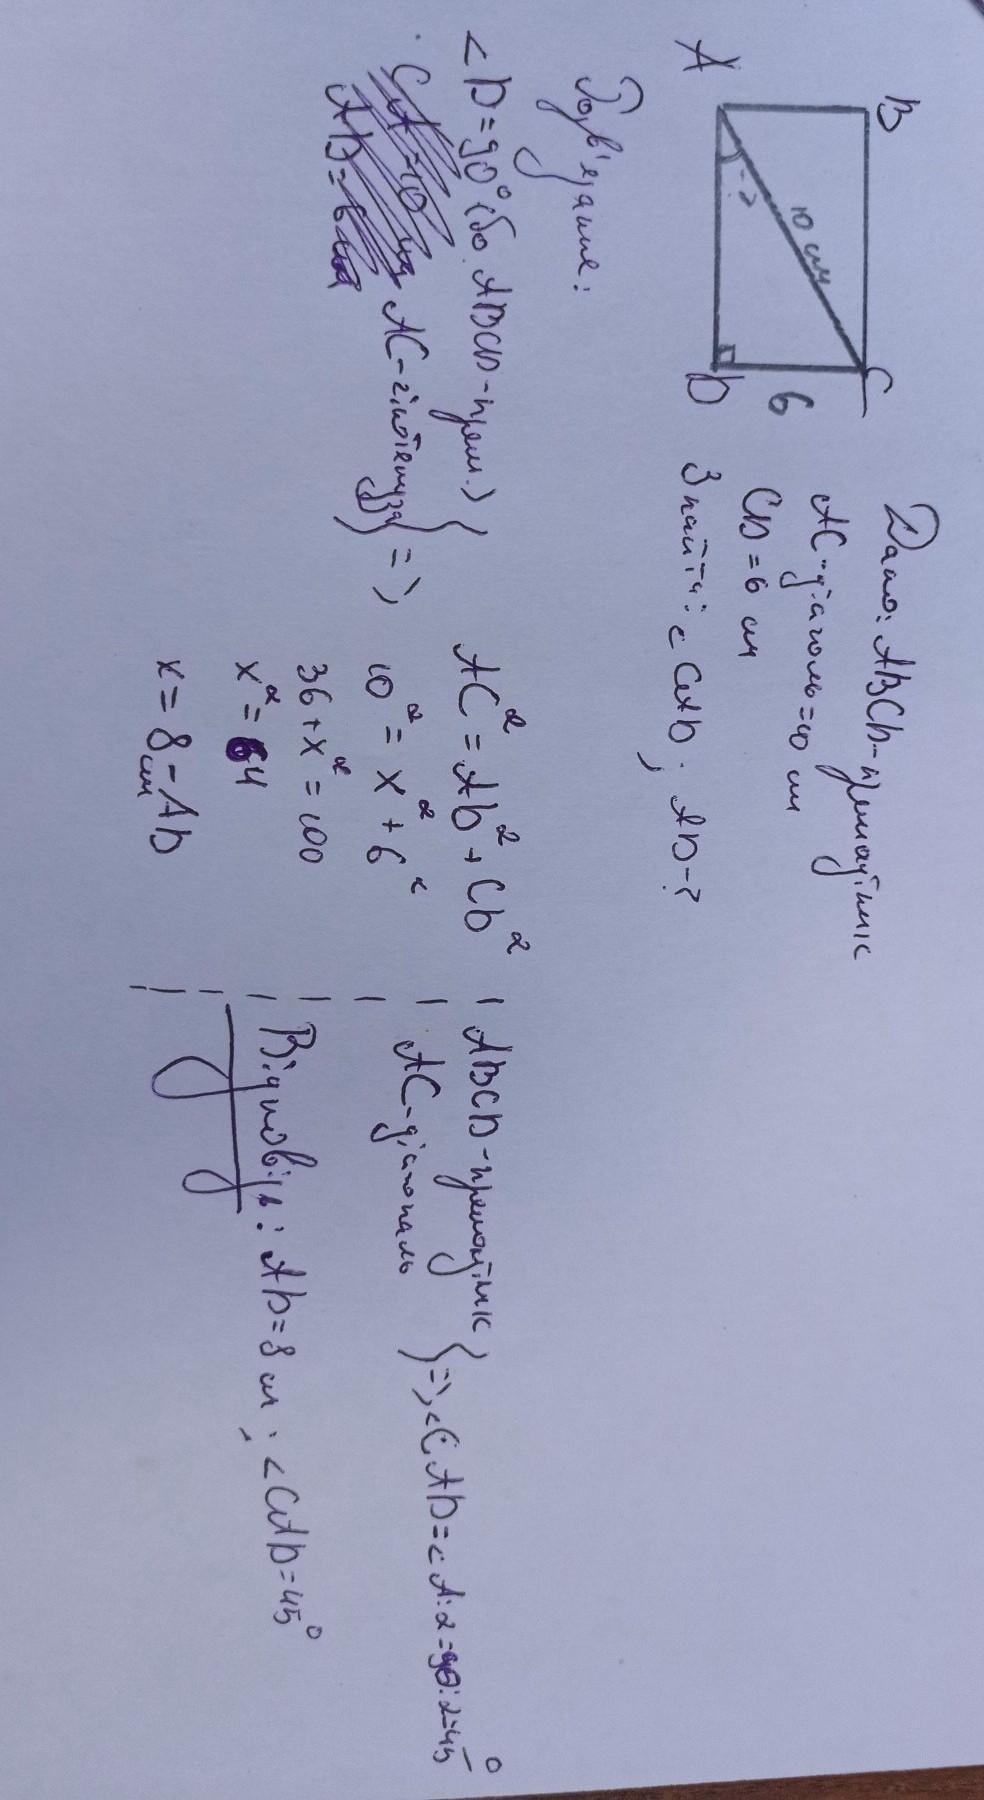 B
C
A
D
10 см
6
-?
Дано: ABCD-прямокутник
AC-діагональ=10 см
CD=6 см
Знайти: <CAD; AD-?
Розв'язання:
<D=90°(бо ABCD-прям.)
AC-гіпотенуза } =>
AC²=AD²+CD²
10²=x²+6²
36+x²=100
x²=64
x=8см-AD
ABCD-прямокутник
AC-діагональ } => <CAD=<A:2=90:2=45°
Відповідь: AD=8 см; <CAD=45°